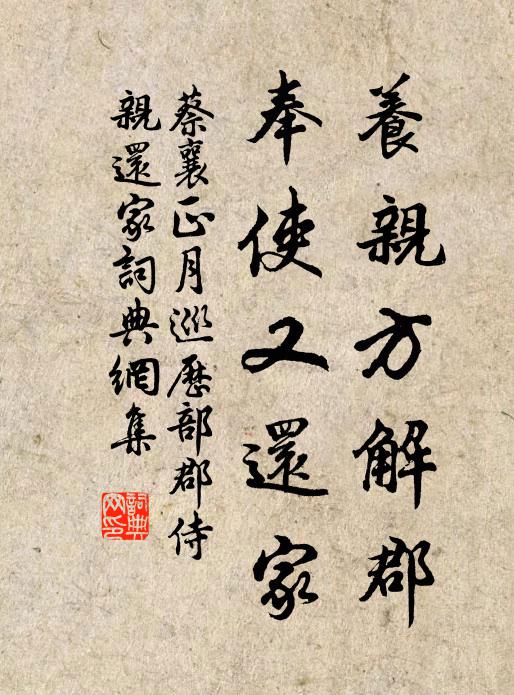 養親方解郡
奉使又還家
蔡襄正月巡歷部郡侍
親還家詞典網集
詞典
网印